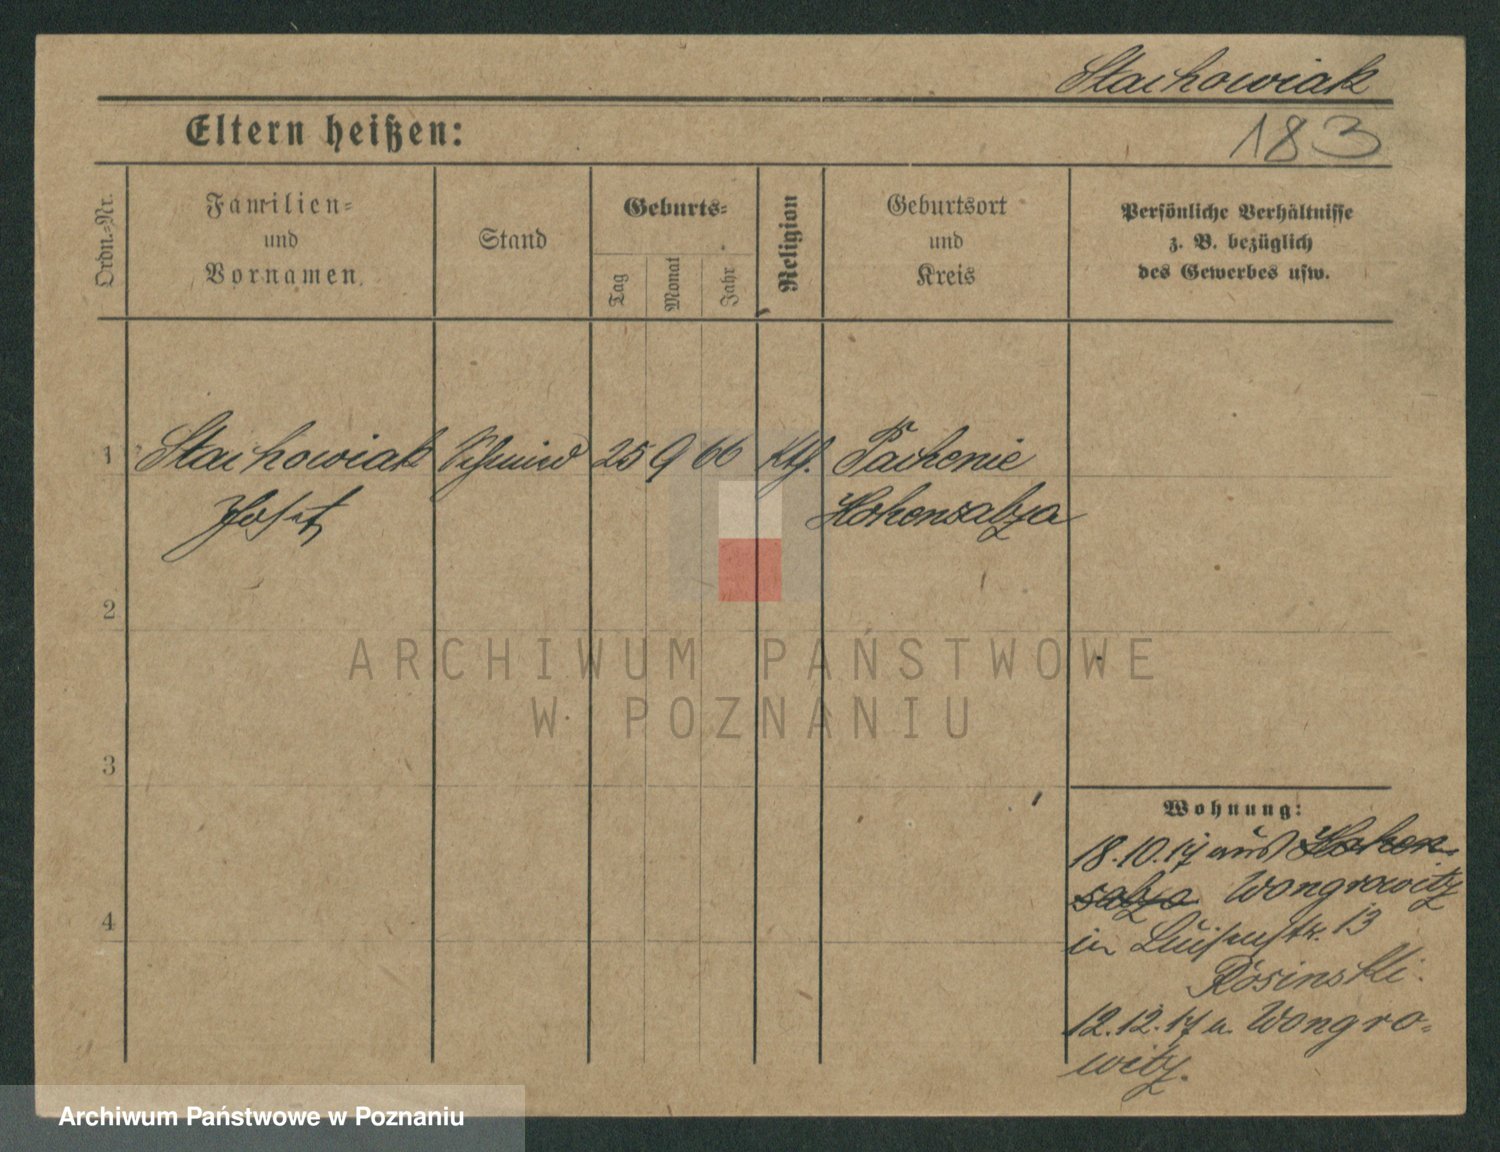 Stachowiak
Eltern heißen:
183
Ordn.-Nr.
Familien-
und
Vornamen
Stand
Geburts-
Tag
Monat
Jahr
Religion
Geburtsort
und
Kreis
Persönliche Verhältnisse
z. B. bezüglich
des Gewerbes usw.
1 Stachowiak Schmied 25 9 66 Kth. Pachonie
Josef Hohensalza
2
3
4
Wohnung:
18.10.17 aus Hohen-
salza Wongrowitz
in Luisenstr. 13
Rosinski.
12.12.17 n. Wongro-
witz.
ARCHIWUM PAŃSTWOWE
W POZNANIU
Archiwum Państwowe w Poznaniu